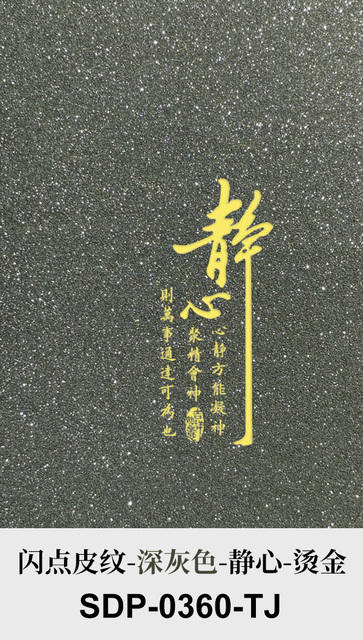 静
心
心静方能凝神
聚精會神
則萬事通達可為也
闪点皮纹-深灰色-静心-烫金
SDP-0360-TJ